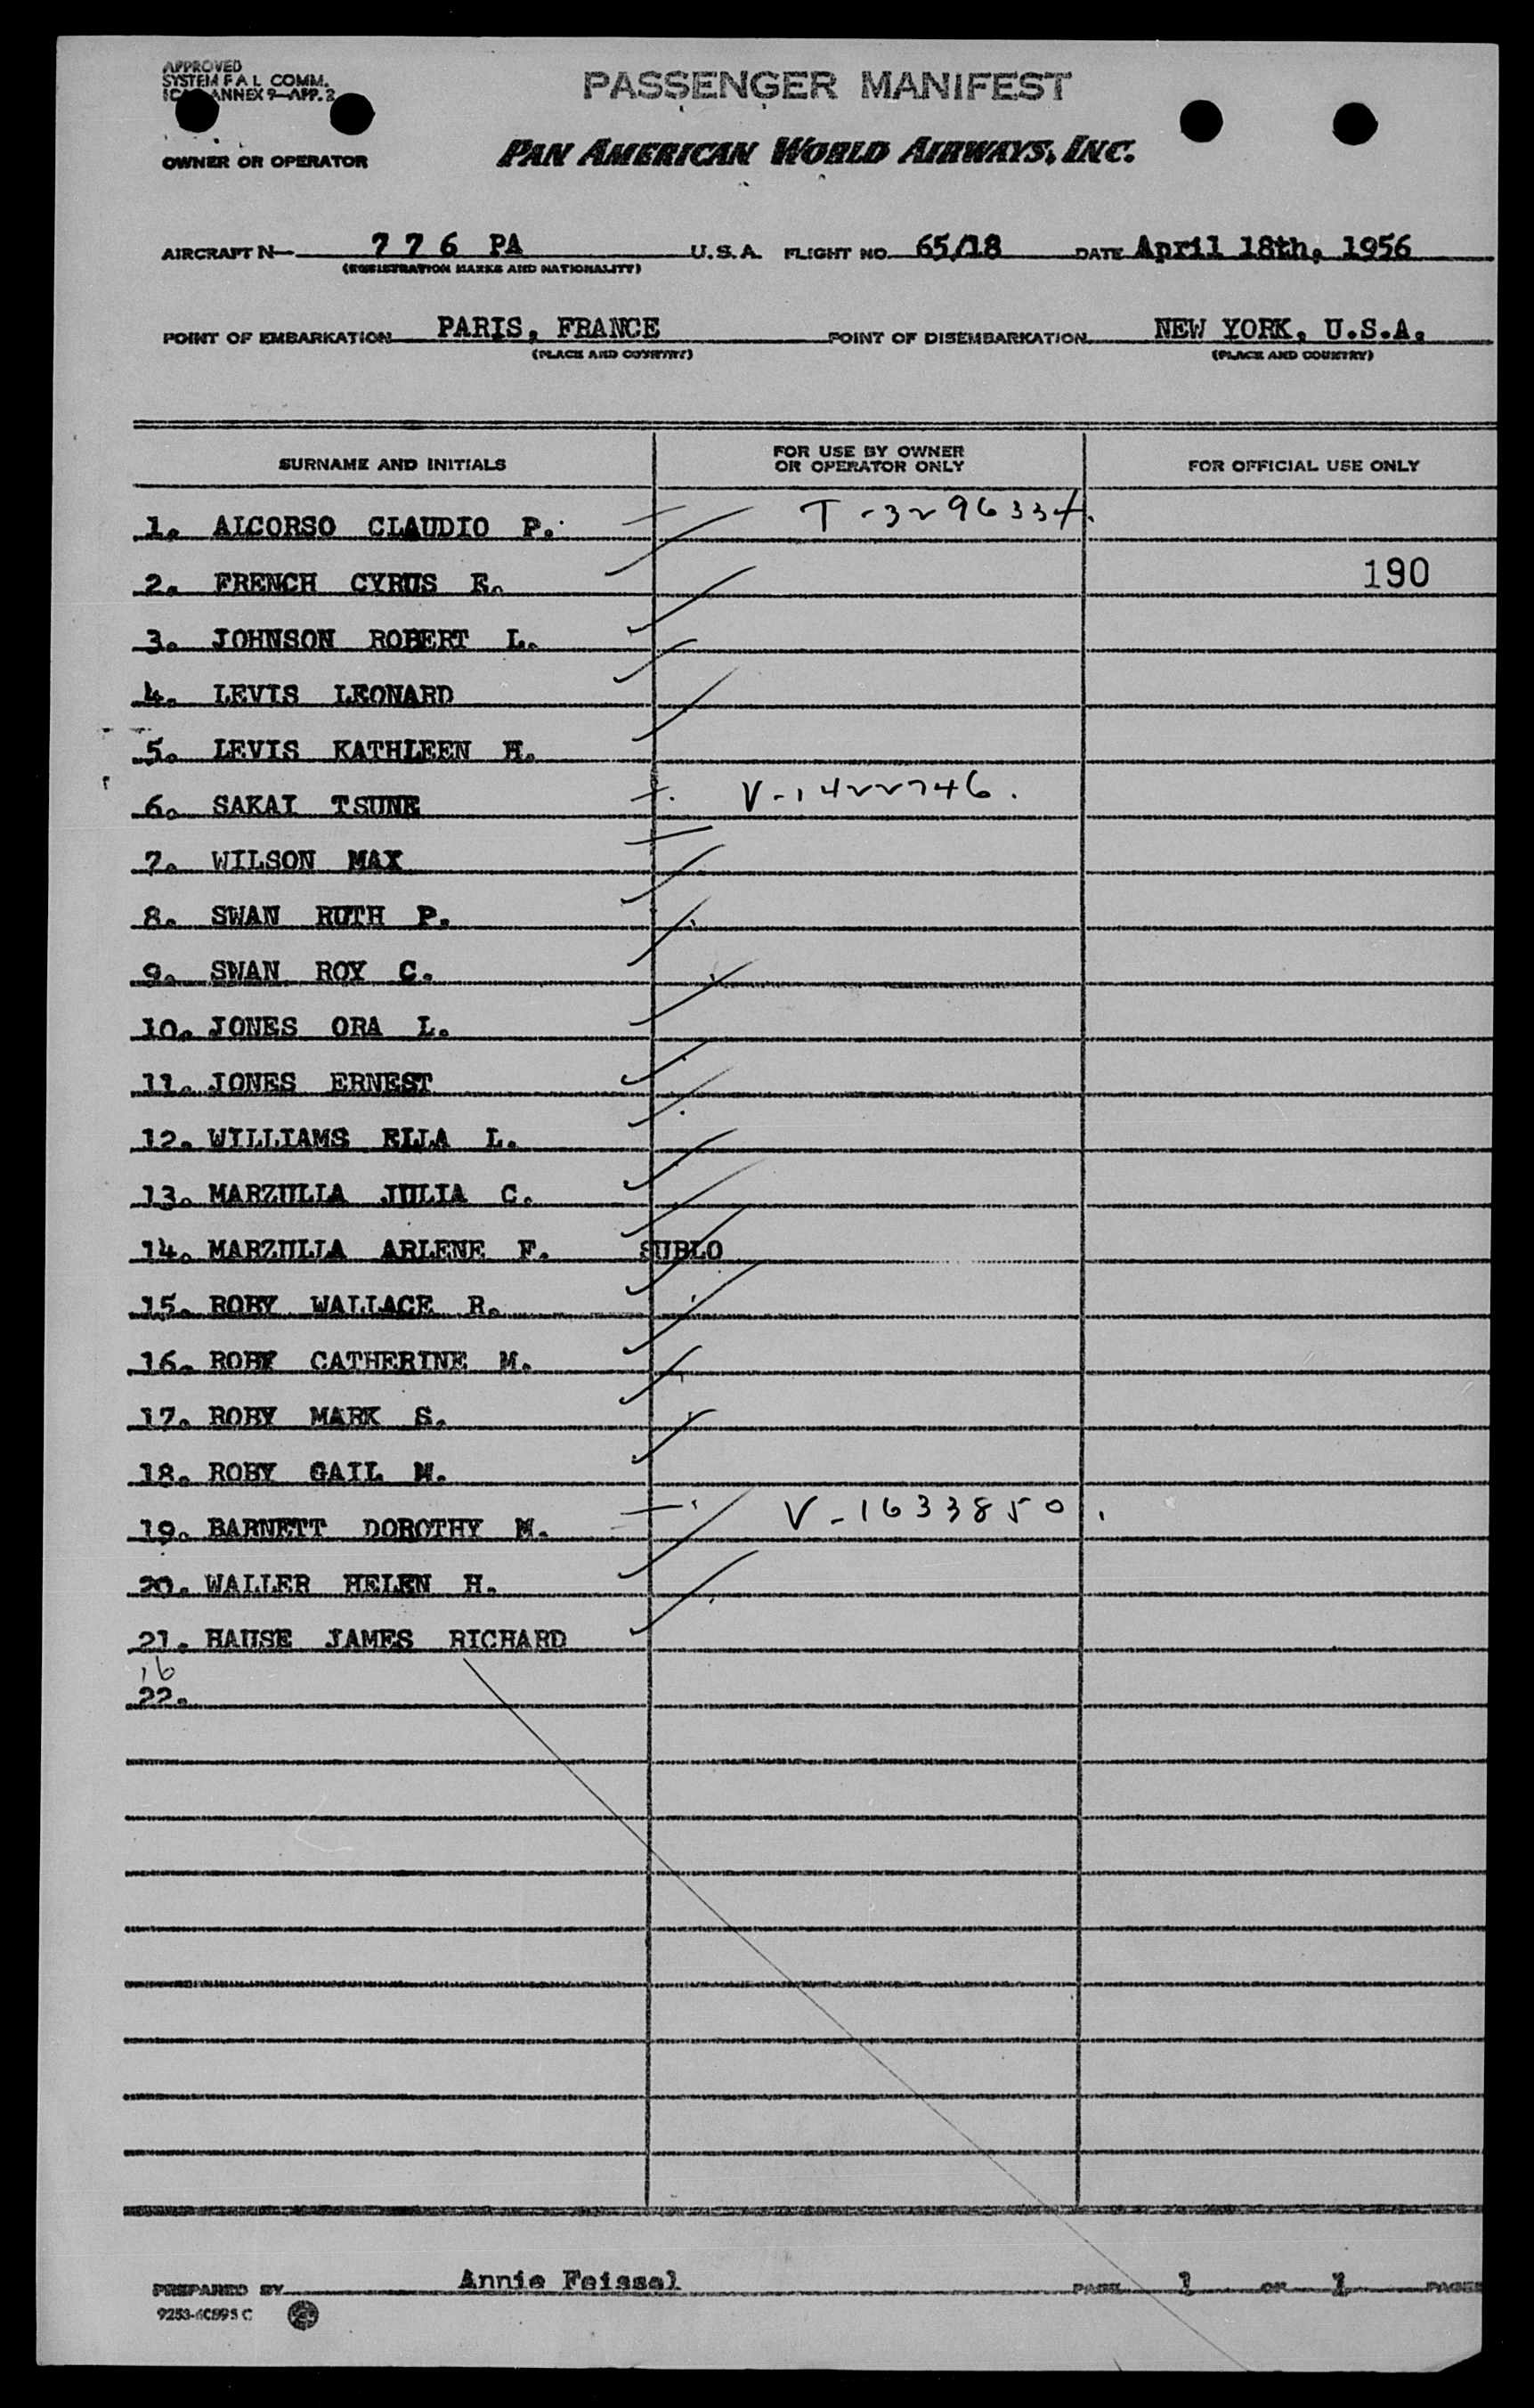 APPROVED
SYSTEM F.A.L. COMM.
ANNEX 9—APP. 2
PASSENGER MANIFEST
OWNER OR OPERATOR
PAN AMERICAN WORLD AIRWAYS, INC.
AIRCRAFT N— 7 7 6 PA U.S.A. FLIGHT NO. 65/18 DATE April 18th, 1956
(REGISTRATION MARKS AND NATIONALITY)
POINT OF EMBARKATION PARIS, FRANCE POINT OF DISEMBARKATION NEW YORK, U.S.A.
(PLACE AND COUNTRY) (PLACE AND COUNTRY)
SURNAME AND INITIALS FOR USE BY OWNER OR OPERATOR ONLY FOR OFFICIAL USE ONLY
1. ALCORSO CLAUDIO P. T-3296334.
2. FRENCH CYRUS E. 190
3. JOHNSON ROBERT L.
4. LEVIS LEONARD
5. LEVIS KATHLEEN H.
6. SAKAI TSUNE V-1422746.
7. WILSON MAX
8. SWAN RUTH P.
9. SWAN ROY C.
10. JONES ORA L.
11. JONES ERNEST
12. WILLIAMS ELLA L.
13. MARZULLA JULIA C.
14. MARZULLA ARLENE F. SUBLO
15. ROBY WALLACE R.
16. ROBY CATHERINE M.
17. ROBY MARK S.
18. ROBY GAIL M.
19. BARNETT DOROTHY M. V-1633850.
20. WALLER HELEN H.
21. HAUSE JAMES RICHARD
16
22.
PREPARED BY Annie Feissel PAGE 1 OF 1 PAGES